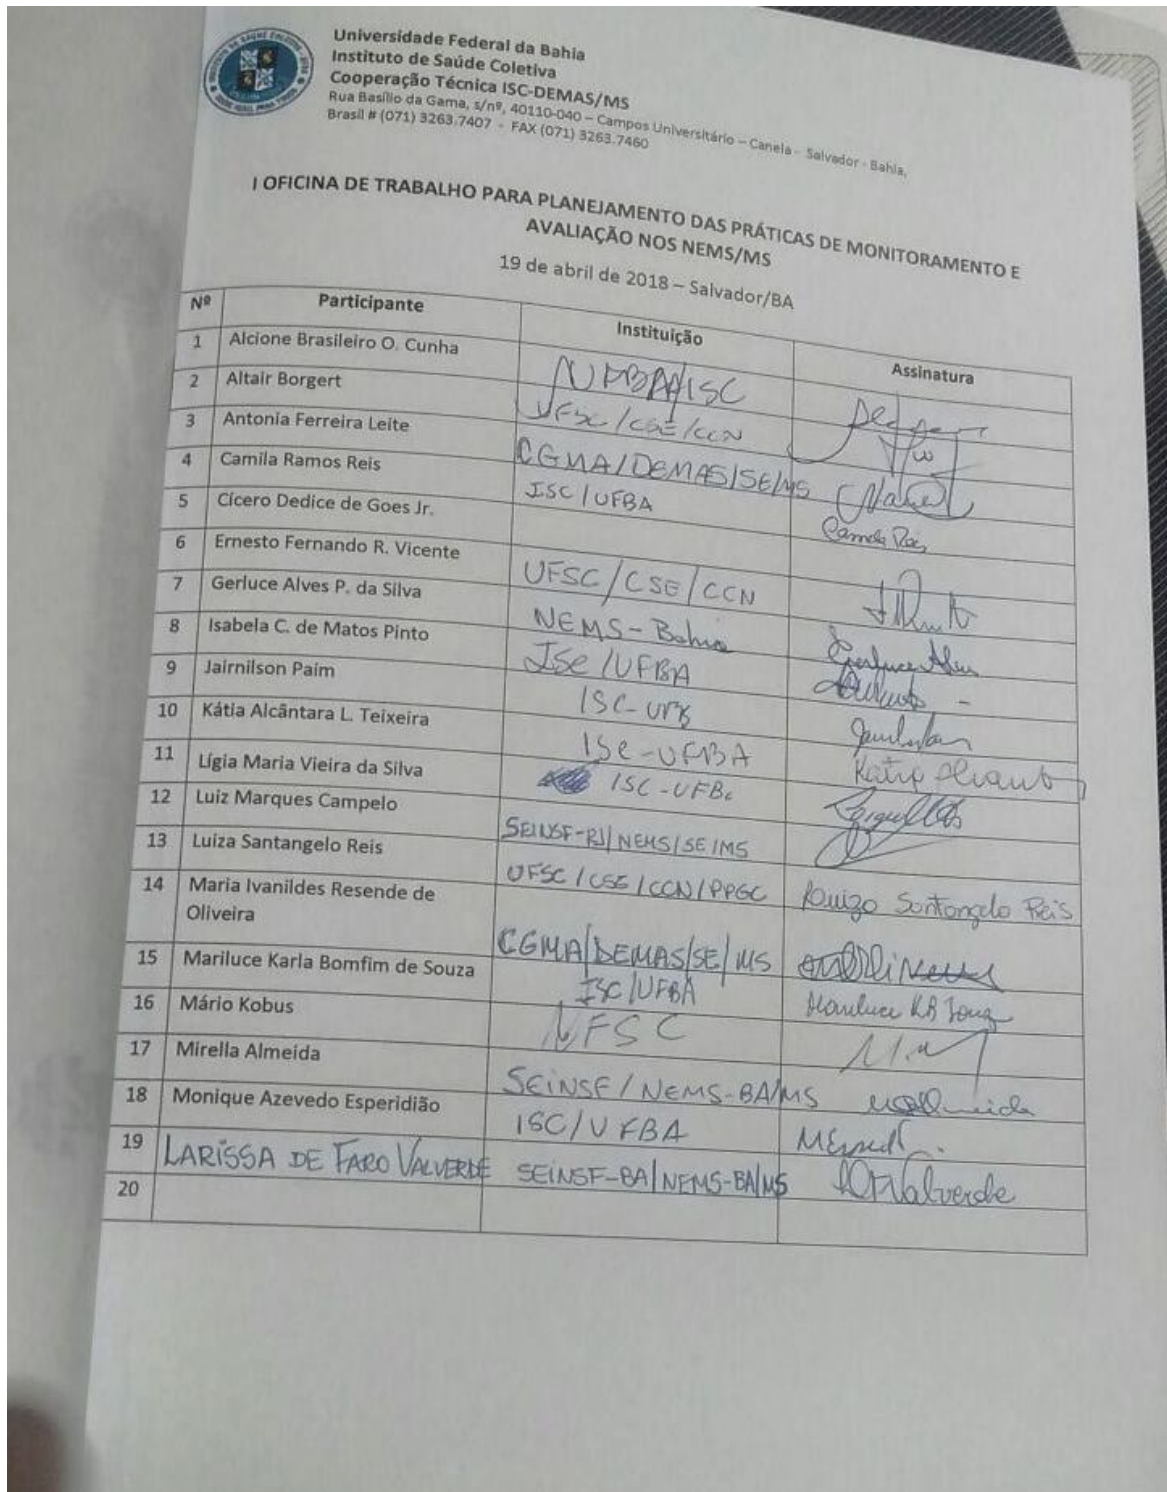 Universidade Federal da Bahia
Instituto de Saúde Coletiva
Cooperação Técnica ISC-DEMAS/MS
Rua Basílio da Gama, s/nº, 40110-040 – Campos Universitário – Canela - Salvador - Bahia,
Brasil # (071) 3263.7407 - FAX (071) 3263.7460
I OFICINA DE TRABALHO PARA PLANEJAMENTO DAS PRÁTICAS DE MONITORAMENTO E
AVALIAÇÃO NOS NEMS/MS
19 de abril de 2018 – Salvador/BA
Nº Participante Instituição Assinatura
1 Alcione Brasileiro O. Cunha UFBA/ISC
2 Altair Borgert UFSC/CSE/CCN
3 Antonia Ferreira Leite CGMA/DEMAS/SE/MS
4 Camila Ramos Reis ISC/UFBA Camila Reis
5 Cícero Dedice de Goes Jr.
6 Ernesto Fernando R. Vicente UFSC/CSE/CCN
7 Gerluce Alves P. da Silva NEMS-Bahia Gerluce Alves
8 Isabela C. de Matos Pinto ISC/UFBA
9 Jairnilson Paim ISC-UFB
10 Kátia Alcântara L. Teixeira ISC-UFBA
11 Lígia Maria Vieira da Silva ISC-UFBa
12 Luiz Marques Campelo SEINSF-RJ/NEMS/SE/MS
13 Luiza Santangelo Reis UFSC/CSE/CCN/PPGC Luiza Santangelo Reis
14 Maria Ivanildes Resende de
Oliveira CGMA/DEMAS/SE/MS
15 Mariluce Karla Bomfim de Souza ISC/UFBA Mariluce KB Souza
16 Mário Kobus UFSC
17 Mirella Almeida SEINSF/NEMS-BA/MS
18 Monique Azevedo Esperidião ISC/UFBA
19 LARISSA DE FARO VALVERDE SEINSF-BA/NEMS-BA/MS LFValverde
20